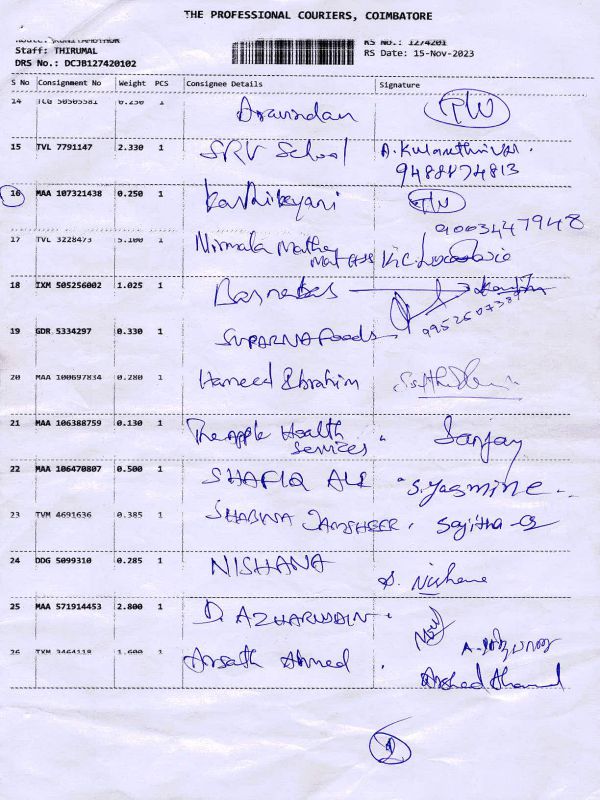 THE PROFESSIONAL COURIERS, COIMBATORE
Staff: THIRUMAL
RS No.: 1274201
DRS No.: DCJB127420102
RS Date: 15-Nov-2023
S No Consignment No Weight PCS Consignee Details Signature
14 TCG 50505581 0.250 1 Aravindan
15 TVL 7791147 2.330 1 SRV School A.
9488474813
16 MAA 107321438 0.250 1 Karthikeyani
9003447948
17 TVL 3228473 5.100 1 Nirmala Matha
Mat HSS
18 IXM 505256002 1.025 1 Barnabas
19 GDR 5334297 0.330 1 SUPARNA Foods
20 MAA 100697834 0.280 1 Hameed Ibrahim
21 MAA 106388759 0.130 1 The apple Health Sanjay
Services
22 MAA 106470807 0.500 1 SHAFIQ ALI S. Yasmine
23 TVM 4691636 0.385 1 SHABNA JAMSHEER. Sajitha
24 DDG 5099310 0.285 1 NISHANA S. Nishana
25 MAA 571914453 2.800 1 D. AZHARUDDIN.
26 TVM 3464118 1.600 1 Arsath Ahmed. Arshed Ahamed